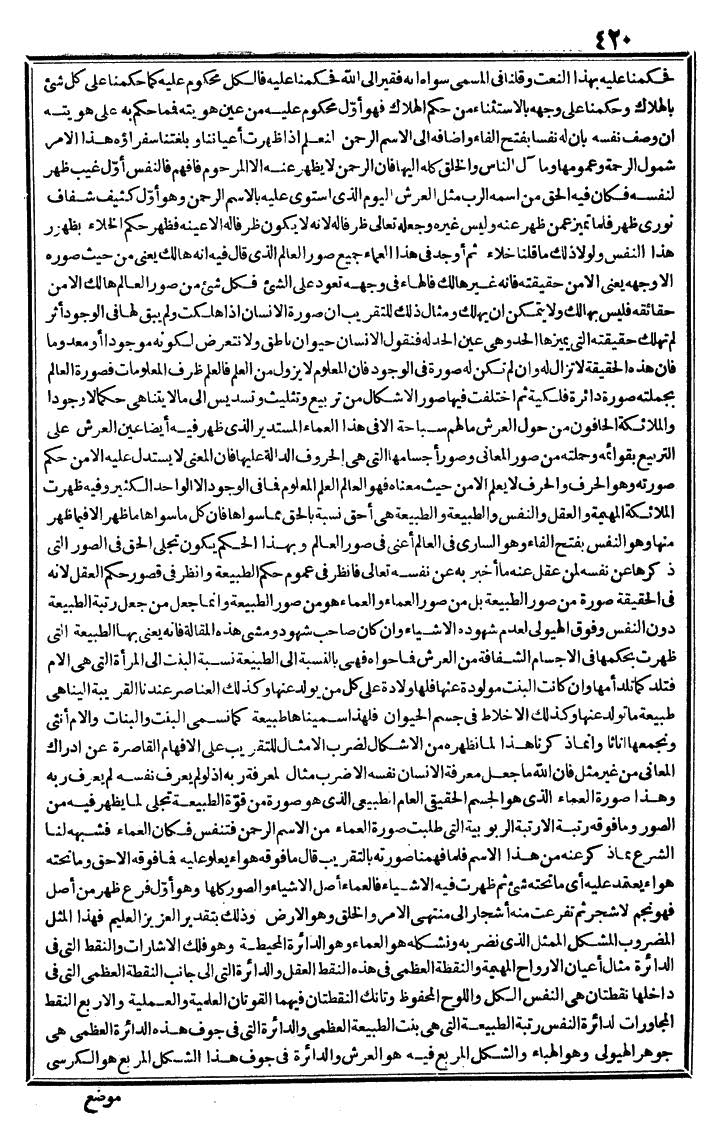 ٤٢٠
فحكمنا عليه بهذا النعت وقلنا فى المسمى سواه انه فقير الى الله فحكمنا عليه فالكل محكوم عليه كما حكمنا على كل شئ
بالهلاك وحكمنا على وجهه بالاستثناء من حكم الهلاك فهو أول محكوم عليه من عين هويته فمما حكم به على هويته
ان وصف نفسه بان له نفسا بفتح الفاء واضافه الى الاسم الرحمن لنعلم اذا ظهرت أعياننا وبلغتنا سفراؤه هذا الامر
شمول الرحمة وعمومها وما آل الناس والخلق كله اليها فان الرحمن لا يظهر عنه الا المرحوم فافهم فالنفس أول غيب ظهر
لنفسه فكان فيه الحق من اسمه الرب مثل العرش اليوم الذى استوى عليه بالاسم الرحمن وهو أول كثيف شفاف
نورى ظهر فلما تميز عمن ظهر عنه وليس غيره وجعله تعالى ظرفا له لانه لا يكون ظرفا له الا عينه فظهر حكم الخلاء بظهور
هذا النفس ولولا ذلك ما قلنا خلاء ثم أوجد فى هذا العماء جميع صور العالم الذى قال فيه انه هالك يعنى من حيث صوره
الا وجهه يعنى الا من حقيقته فانه غير هالك فالهاء فى وجهه تعود على الشئ فكل شئ من صور العالم هالك الا من
حقائقه فليس بهالك ولا يتمكن ان يهلك ومثال ذلك للتقريب ان صورة الانسان اذا هلكت ولم يبق لها فى الوجود أثر
لم تهلك حقيقته التى يميزها الحد وهى عين الحد له فنقول الانسان حيوان ناطق ولا نتعرض لكونه موجودا أو معدوما
فان هذه الحقيقة لا تزال له وان لم تكن له صورة فى الوجود فان المعلوم لا يزول من العلم فالعلم ظرف المعلومات فصورة العالم
بجملته صورة دائرة فلكية ثم اختلفت فيها صور الاشكال من تربيع وتثليث وتسديس الى ما لا يتناهى حكما لا وجودا
والملائكة الحافون من حول العرش ما لهم سباحة الا فى هذا العماء المستدير الذى ظهر فيه أيضا عين العرش على
التربيع بقوائمه وحملته من صور المعانى وصور أجسامها التى هى الحروف الدالة عليها فان المعنى لا يستدل عليه الا من حكم
صورته وهو الحرف والحرف لا يعلم الا من حيث معناه فهو العالم العلم المعلوم فما فى الوجود الا الواحد الكثير وفيه ظهرت
الملائكة المهيمة والعقل والنفس والطبيعة والطبيعة هى أحق نسبة بالحق مما سواها فان كل ما سواها ما ظهر الا فيما ظهر
منها وهو النفس بفتح الفاء وهو السارى فى العالم أعنى فى صور العالم وبهذا الحكم يكون تجلى الحق فى الصور التى
ذكرها عن نفسه لمن عقل عنه ما أخبر به عن نفسه تعالى فانظر فى عموم حكم الطبيعة وانظر فى قصور حكم العقل لانه
فى الحقيقة صورة من صور الطبيعة بل من صور العماء والعماء هو من صور الطبيعة وانما جعل من جعل رتبة الطبيعة
دون النفس وفوق الهيولى لعدم شهوده الاشياء وان كان صاحب شهود ومشى هذه المقالة فانه يعنى بها الطبيعة التى
ظهرت بحكمها فى الاجسام الشفافة من العرش فما حواه فهى بالنسبة الى الطبيعة نسبة البنت الى المرأة التى هى الام
فتلد كما تلد أمها وان كانت البنت مولودة عنها فلها ولادة على كل من يولد عنها وكذلك العناصر عندنا القريبة الينا هى
طبيعة ما تولد عنها وكذلك الاخلاط فى جسم الحيوان فلهذا سميناها طبيعة كما نسمى البنت والبنات والام أنثى
ونجمعها اناثا وانما ذكرنا هذا لما نظهره من الاشكال لضرب الامثال للتقريب على الافهام القاصرة عن ادراك
المعانى من غير مثل فان الله ما جعل معرفة الانسان نفسه الا ضرب مثال لمعرفة ربه اذ لو لم يعرف نفسه لم يعرف ربه
وهذا صورة العماء الذى هو الجسم الحقيقى العام الطبيعى الذى هو صورة من قوة الطبيعة تجلى لما يظهر فيه من
الصور وما فوقه رتبة الا رتبة الربوبية التى طلبت صورة العماء من الاسم الرحمن فتنفس فكان العماء فشبهه لنا
الشرع بما ذكر عنه من هذا الاسم فلما فهمنا صورته بالتقريب قال ما فوقه هواء يعلو عليه فما فوقه الا حق وما تحته
هواء يعتمد عليه أى ما تحته شئ ثم ظهرت فيه الاشياء فالعماء أصل الاشياء والصور كلها وهو أول فرع ظهر من أصل
فهو نجم لا شجر ثم تفرعت منه أشجار الى منتهى الامر والخلق وهو الارض وذلك بتقدير العزيز العليم فهذا المثل
المضروب المشكل الممثل الذى نضربه ونشكله هو العماء وهو الدائرة المحيطة وهو فلك الاشارات والنقط التى فى
الدائرة مثال أعيان الارواح المهيمة والنقطة العظمى فى هذه النقط العقل والدائرة التى الى جانب النقطة العظمى التى فى
داخلها نقطتان هى النفس الكل واللوح المحفوظ وتانك النقطتان فيهما القوتان العلمية والعملية والاربع النقط
المجاورات لدائرة النفس رتبة الطبيعة التى هى بنت الطبيعة العظمى والدائرة التى فى جوف هذه الدائرة العظمى هى
جوهر الهيولى وهو الهباء والشكل المربع فيه هو العرش والدائرة فى جوف هذا الشكل المربع هو الكرسى
موضع